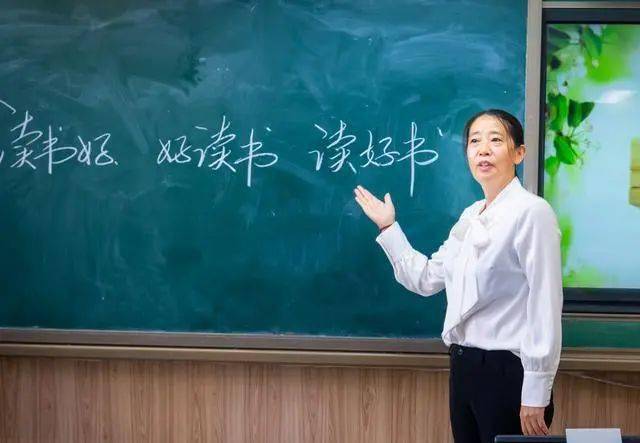 读书好 好读书 读好书